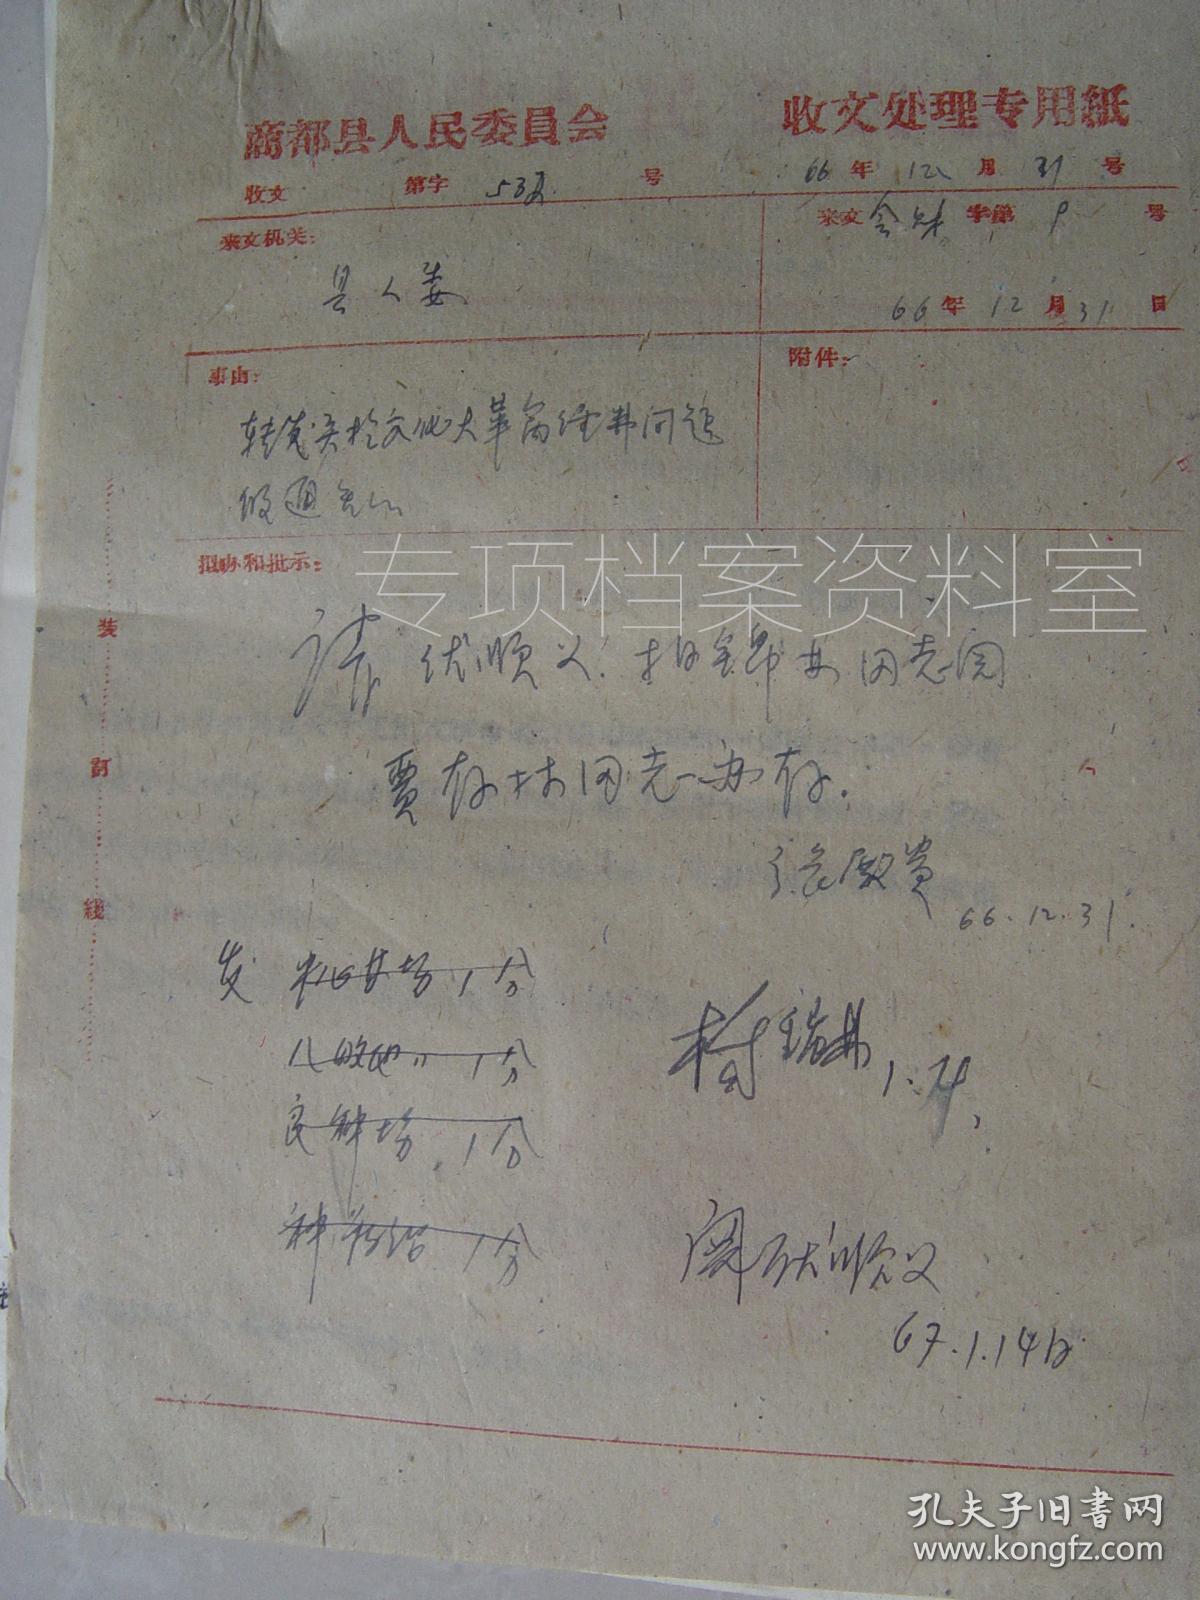 商都县人民委員会 收文处理专用紙
收文 第字 号 66年 12 月 31 号
来文机关: 来文 会财 字第 9 号
县人委
66年 12 月 31 日
事由: 附件:
转发关於文化大革命经费问题
的通知
拟办和批示:
专项档案资料室
请 伏顺义. 同志阅
贾存林同志办存.
张殿贵
66.12.31.
发 1分
1分
良种场 1分
1分
1.
阅 伏顺义
67.1.14日
装
訂
綫
孔夫子旧书网
www.kongfz.com